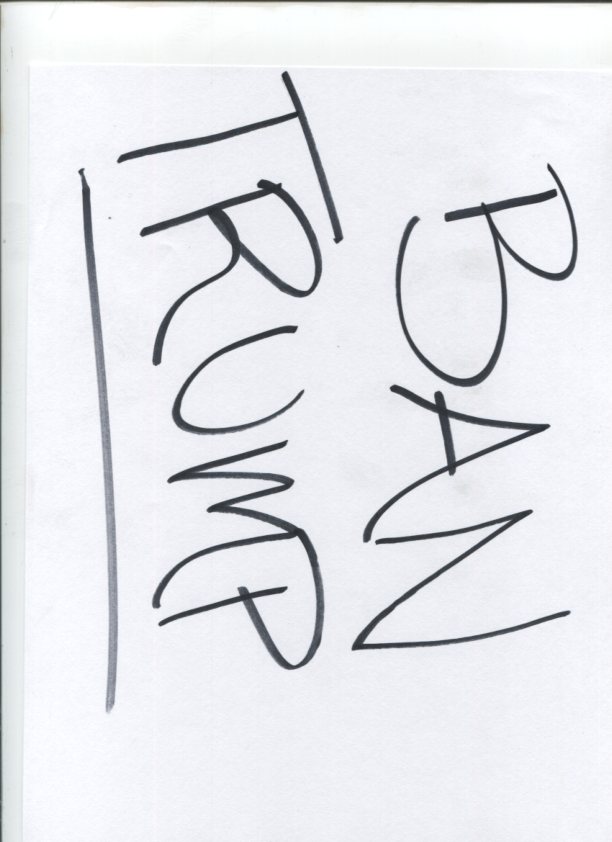 BAN
TRUMP